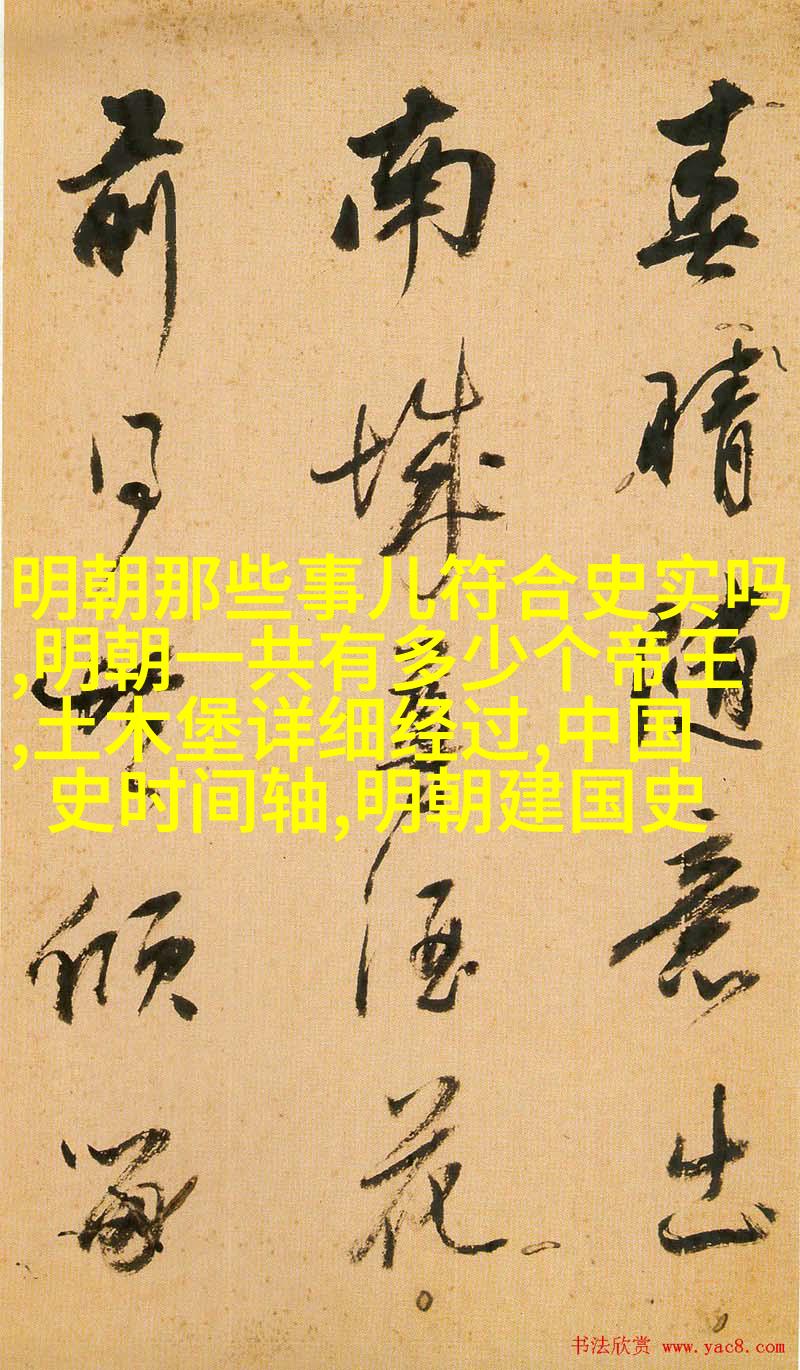 春晴随意出
南城
酒花
前日
倾
留
明朝那些事儿符合史实吗
,明朝一共有多少个帝王
,土木堡详细经过,中国
史时间轴,明朝建国史
书法欣赏 www.yac8.com